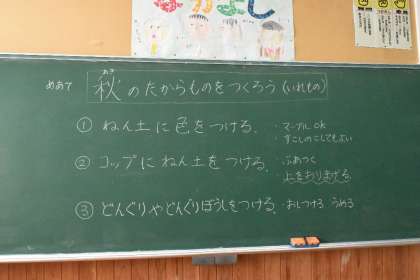 なかよし
めあて 秋のたからものをつくろう(いれもの)
あき
① ねん土に色をつける。
・マーブルOK
・すこしのこしてもよい
② コップにねん土をつける。
・ぶあつく
・上をおりまげる
③ どんぐりやどんぐりぼうしをつける。・おしつける うめる